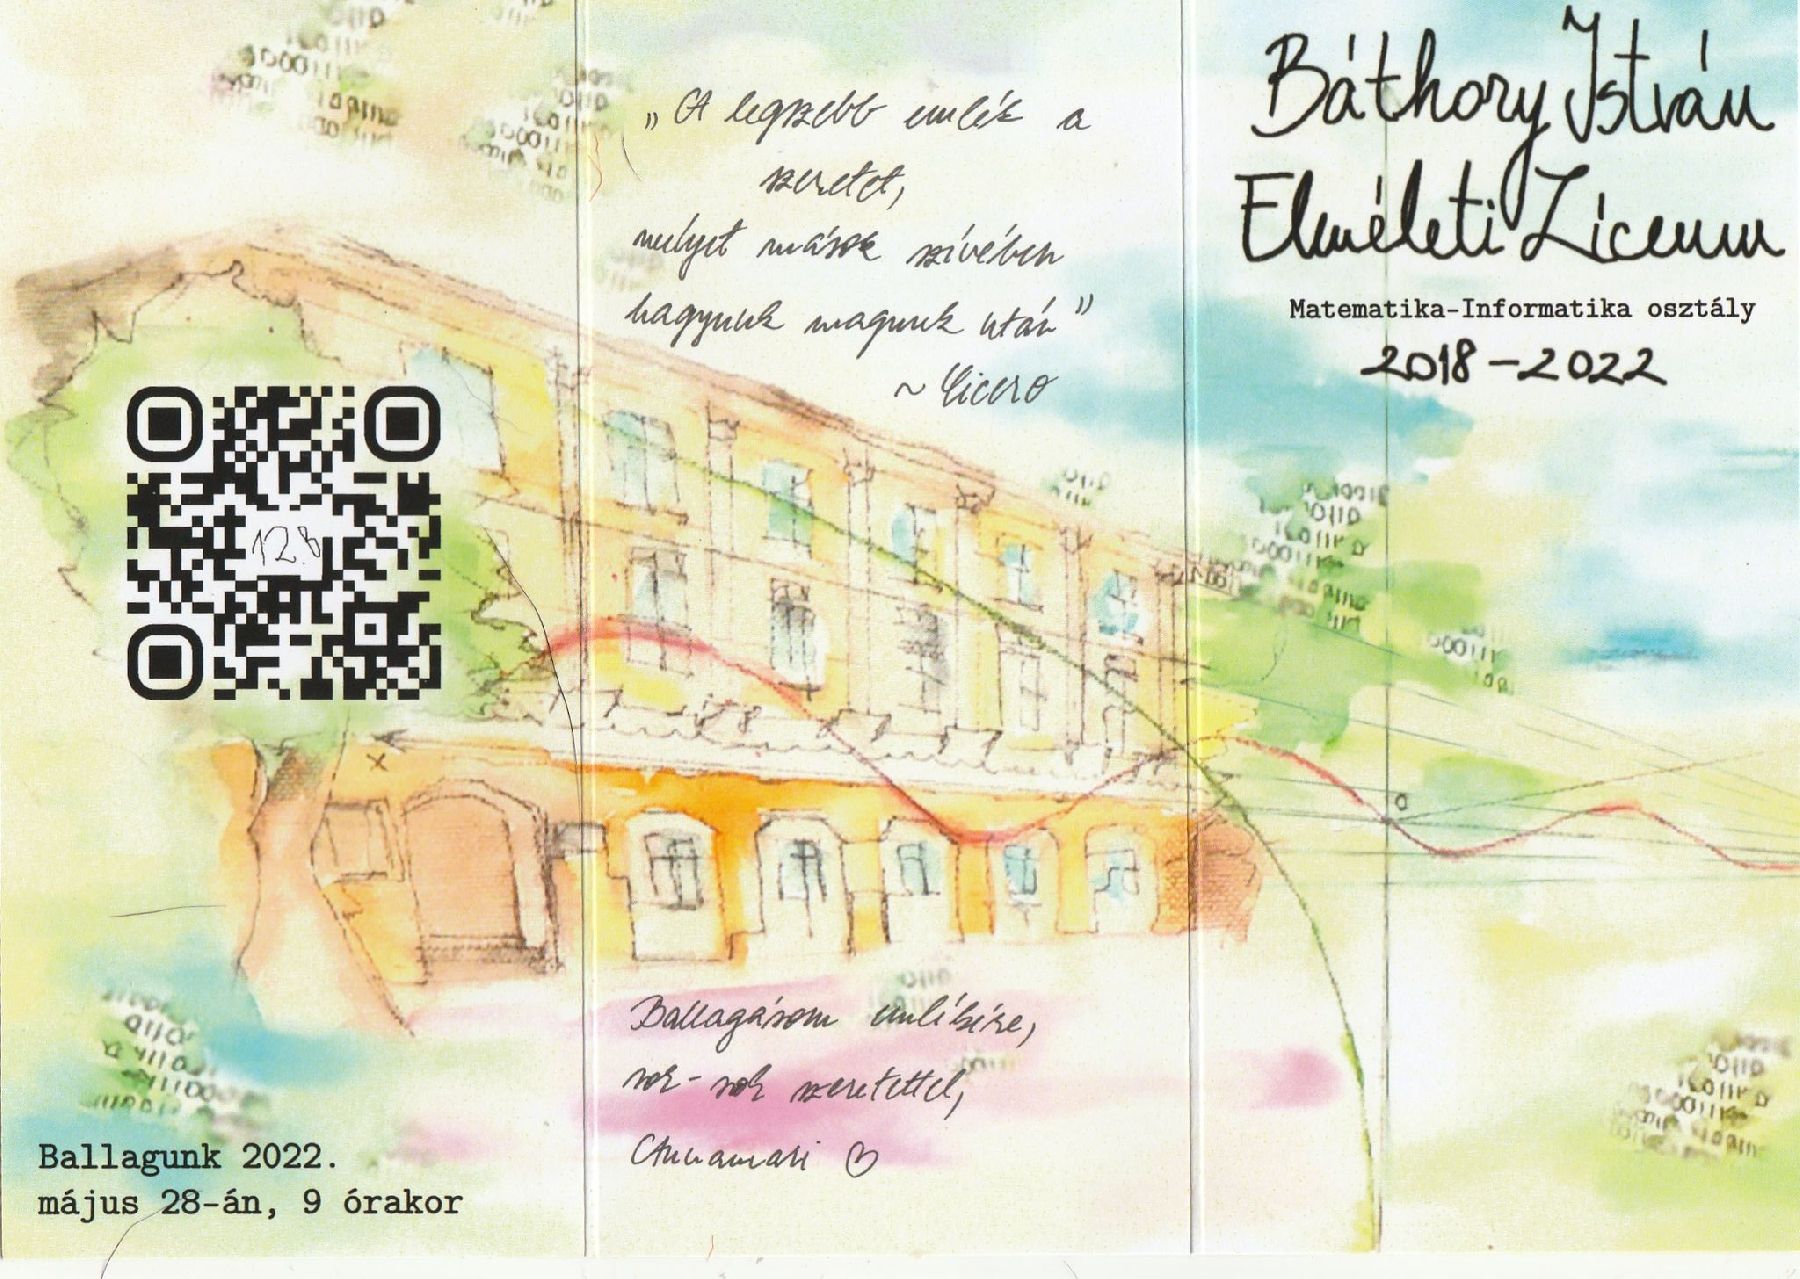 Báthory István
Elméleti Líceum
Matematika-Informatika osztály
2018-2022
„A legszebb emlék a
szeretet,
melyet mások szívében
hagyunk magunk után"
~ Cicero
Ballagásom emlékére,
sok-sok szeretettel,
Annamari ♡
12.B
Ballagunk 2022.
május 28-án, 9 órakor